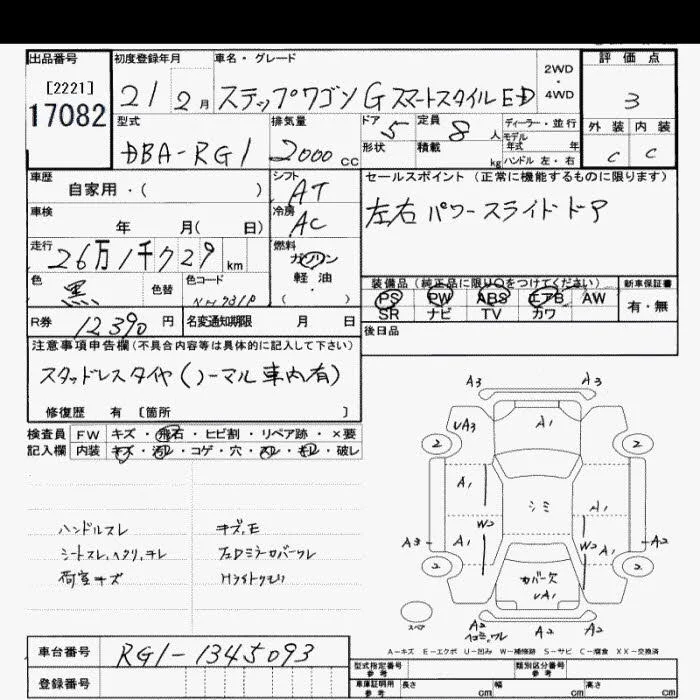 出品番号
[2221]
17082
初度登録年月
21 2月
車名・グレード
ステップワゴン G スマートスタイル ED
2WD
・
4WD
評価点
3
外装 内装
C C
型式
DBA-RG1
排気量
2000 CC
ドア 5
形状
定員 8 人
積載 kg
ディーラー・並行
モデル
年式 年
ハンドル 左・右
車歴
自家用・( )
シフト
AT
セールスポイント (正常に機能するものに限ります)
左右パワースライドドア
車検
年 月( 日)
冷房
AC
走行
26万1千729 km
燃料
ガソリン
軽油
( )
色
黒
色替
色コード
NH731P
装備品(純正品に限り○をつけてください)
PS PW ABS エアB AW
SR ナビ TV カワ
新車保証書
有・無
R券 12390 円
名変通知期限 月 日
後日品
注意事項申告欄(不具合内容等は具体的に記入して下さい)
スタッドレスタイヤ(ノーマル車内有)
修復歴 有 〔箇所 〕
検査員
記入欄
FW キズ・飛石・ヒビ割・リペア跡・×要
内装 キズ・汚レ・コゲ・穴・スレ・モレ・破レ
ハンドルスレ
シートスレ、ヘタリ、モレ
荷室キズ
キズ、モ
フェロミラーカバーワレ
Hライトクモリ
A3 A3
UA3 A1
2 2
A1 シミ A1
W2 W2
A3 A1 A1 A2
2 2
カバー欠
UA1
スペア
A2 A2 A2
A-キズ E-エクボ U-凹み W-補修跡 S-サビ C-腐食 XX-交換済
車台番号 RG1-1345093
登録番号
型式指定番号
参考
類別区分番号
参考
車庫証明用
参考
長さ cm 幅 cm 高さ cm